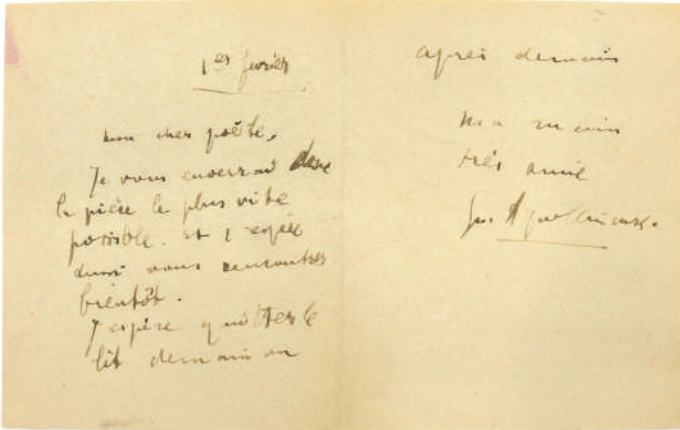 1er février
mon cher poète,
Je vous enverrai donc
la pièce le plus vite
possible. et j espère
aussi vous rencontrer
bientôt.
J espère quitter le
lit demain ou
après demain
Ma main
très amie
Guil Apollinaire.